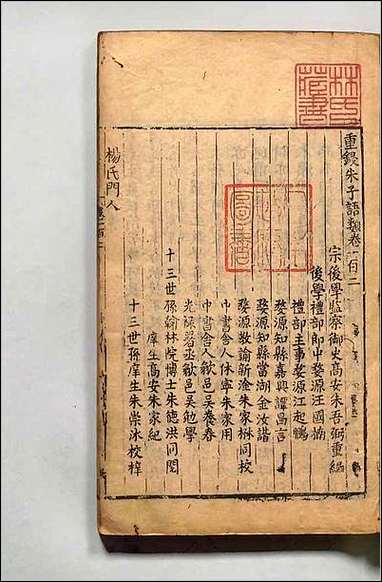 林氏藏書
重鋟朱子語類卷一百二
宗後學監察御史高安朱吾弼重編
後學禮部郎中婺源汪國楠
禮部主事婺源江起鵬
婺源知縣嘉興譚昌言
婺源知縣當湖金汝諧
婺源教諭新淦朱家楙同校
中書舍人休寧朱家用
中書舍人歙邑吳養春
光祿署丞歙邑吳勉學
庠生高安朱家紀
十三世孫翰林院博士朱德洪同閱
十三世孫庠生朱崇沐校梓
楊氏門人